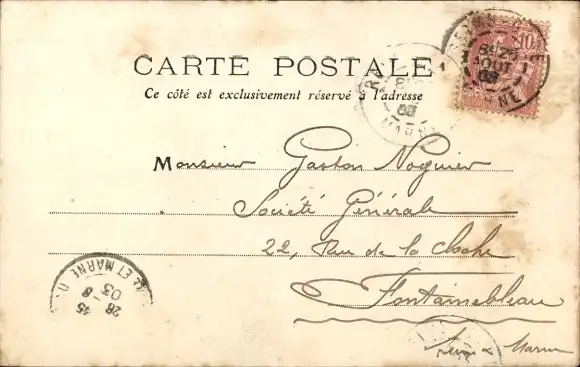 CARTE POSTALE
Ce côté est exclusivement réservé à l'adresse
10
AOUT
03
MARNE
Monsieur Gaston Noguier
Société Générale
22, Rue de la Cloche
Fontainebleau
Seine & Marne
ET MARNE
28 - 8
03